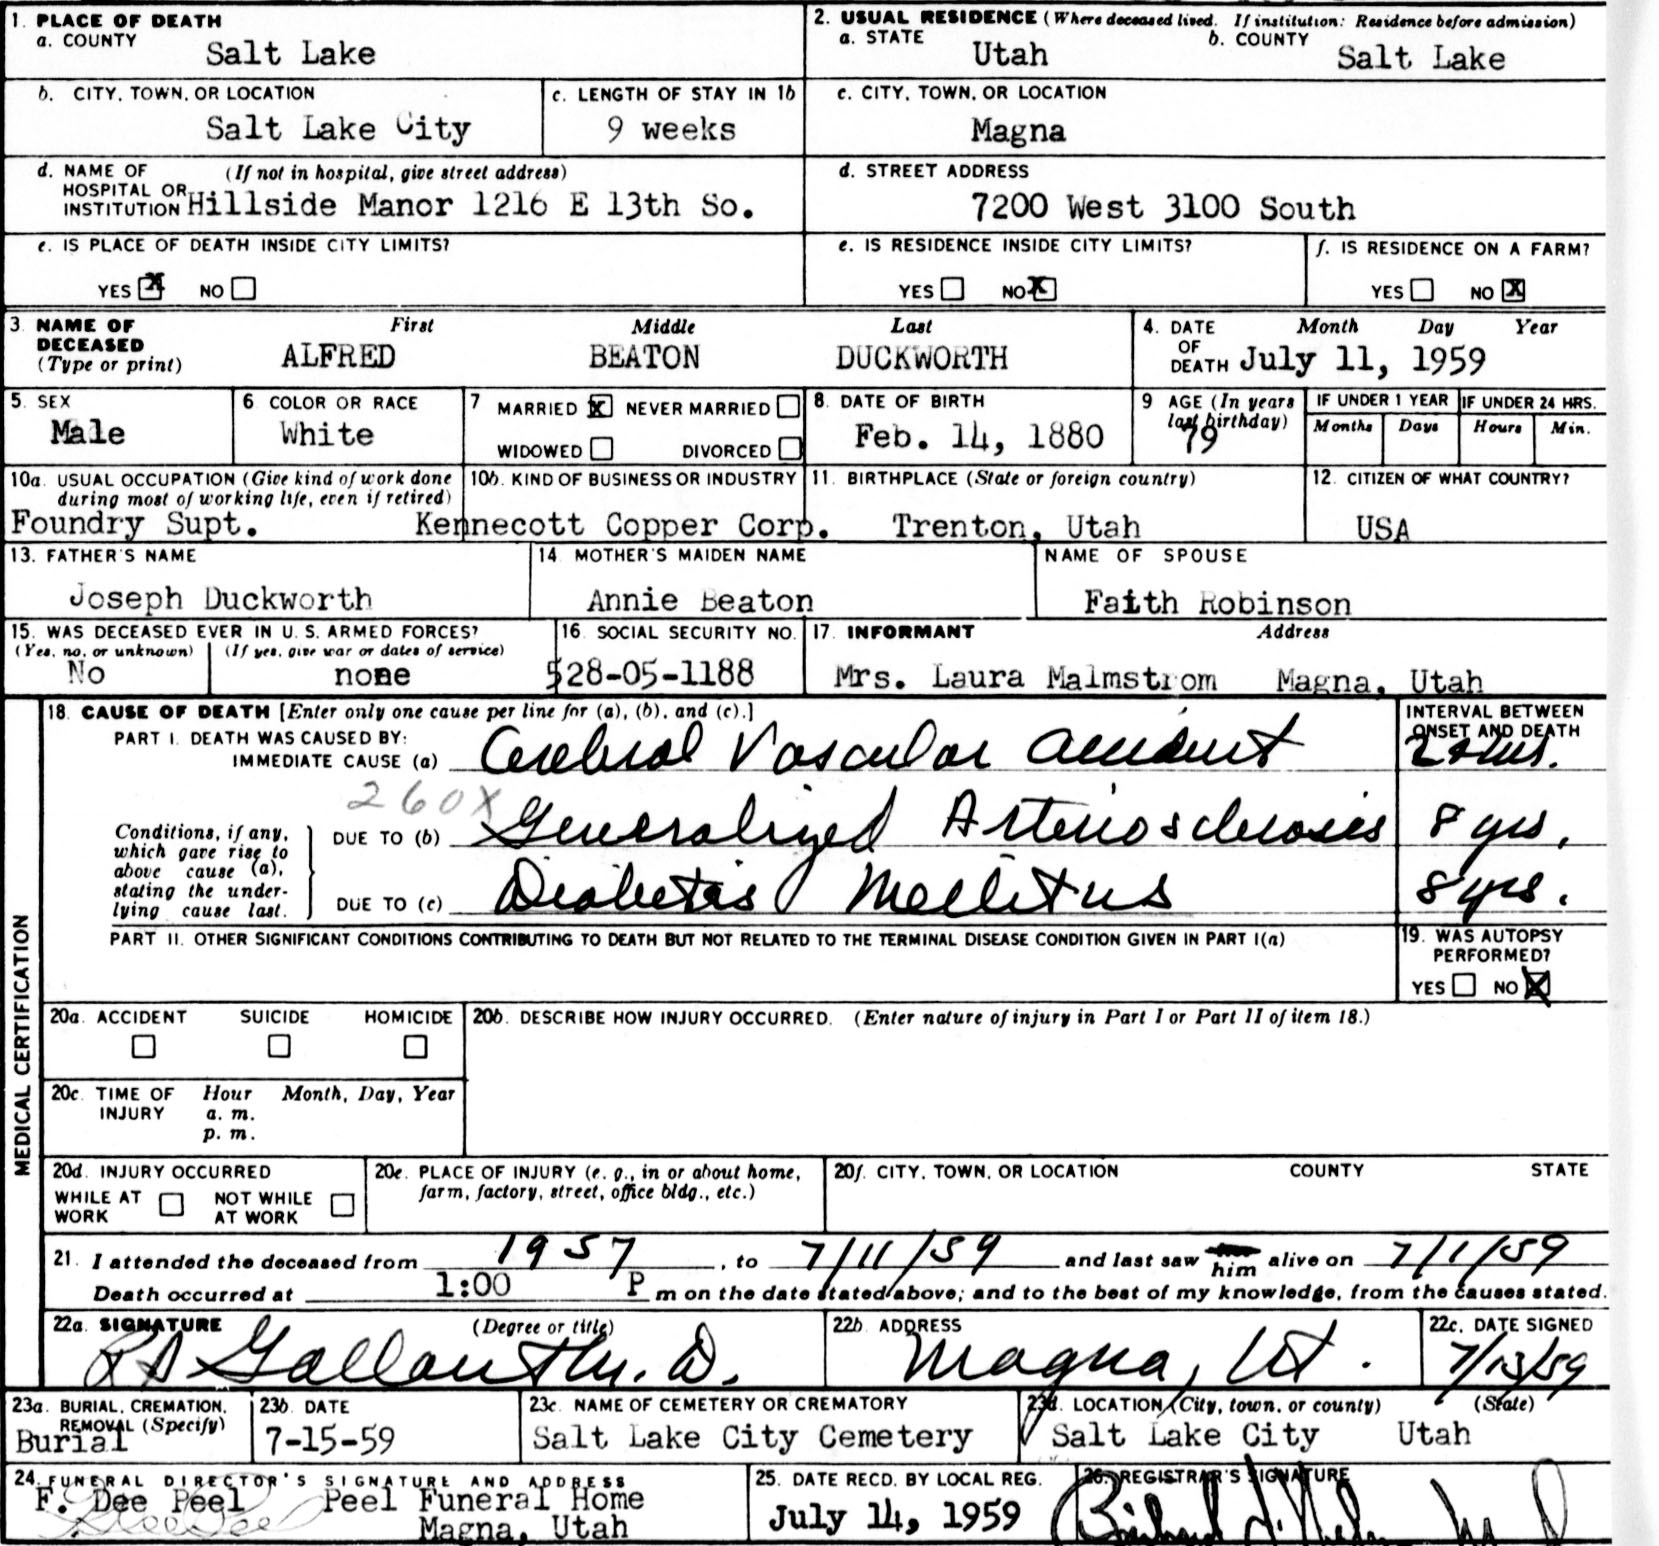 1. PLACE OF DEATH
a. COUNTY
Salt Lake
2. USUAL RESIDENCE (Where deceased lived. If institution: Residence before admission)
a. STATE
Utah
b. COUNTY
Salt Lake
b. CITY, TOWN, OR LOCATION
Salt Lake City
c. LENGTH OF STAY IN 1b
9 weeks
c. CITY, TOWN, OR LOCATION
Magna
d. NAME OF (If not in hospital, give street address)
HOSPITAL OR
INSTITUTION Hillside Manor 1216 E 13th So.
d. STREET ADDRESS
7200 West 3100 South
e. IS PLACE OF DEATH INSIDE CITY LIMITS?
YES X NO
e. IS RESIDENCE INSIDE CITY LIMITS?
YES NO X
f. IS RESIDENCE ON A FARM?
YES NO X
3. NAME OF DECEASED
(Type or print)
First Middle Last
ALFRED BEATON DUCKWORTH
4. DATE OF DEATH
Month Day Year
July 11, 1959
5. SEX
Male
6. COLOR OR RACE
White
7. MARRIED X NEVER MARRIED
WIDOWED DIVORCED
8. DATE OF BIRTH
Feb. 14, 1880
9. AGE (In years last birthday)
79
IF UNDER 1 YEAR
Months Days
IF UNDER 24 HRS.
Hours Min.
10a. USUAL OCCUPATION (Give kind of work done
during most of working life, even if retired)
Foundry Supt.
10b. KIND OF BUSINESS OR INDUSTRY
Kennecott Copper Corp.
11. BIRTHPLACE (State or foreign country)
Trenton, Utah
12. CITIZEN OF WHAT COUNTRY?
USA
13. FATHER'S NAME
Joseph Duckworth
14. MOTHER'S MAIDEN NAME
Annie Beaton
NAME OF SPOUSE
Faith Robinson
15. WAS DECEASED EVER IN U. S. ARMED FORCES?
(Yes, no, or unknown) (If yes, give war or dates of service)
No none
16. SOCIAL SECURITY NO.
528-05-1188
17. INFORMANT Address
Mrs. Laura Malmstrom Magna, Utah
MEDICAL CERTIFICATION
18. CAUSE OF DEATH [Enter only one cause per line for (a), (b), and (c).]
INTERVAL BETWEEN
ONSET AND DEATH
PART I. DEATH WAS CAUSED BY:
IMMEDIATE CAUSE (a) Cerebral Vascular accident
260X
Conditions, if any,
which gave rise to
above cause (a),
stating the under-
lying cause last.
DUE TO (b) Generalized Arteriosclerosis 8 yrs.
DUE TO (c) Diabetes Mellitus 8 yrs.
PART II. OTHER SIGNIFICANT CONDITIONS CONTRIBUTING TO DEATH BUT NOT RELATED TO THE TERMINAL DISEASE CONDITION GIVEN IN PART I(a)
19. WAS AUTOPSY
PERFORMED?
YES NO X
20a. ACCIDENT SUICIDE HOMICIDE
20b. DESCRIBE HOW INJURY OCCURRED. (Enter nature of injury in Part I or Part II of item 18.)
20c. TIME OF INJURY
Hour Month, Day, Year
a. m.
p. m.
20d. INJURY OCCURRED
WHILE AT WORK NOT WHILE AT WORK
20e. PLACE OF INJURY (e. g., in or about home,
farm, factory, street, office bldg., etc.)
20f. CITY, TOWN, OR LOCATION COUNTY STATE
21. I attended the deceased from 1957, to 7/11/59 and last saw him alive on 7/1/59
Death occurred at 1:00 P m on the date stated above; and to the best of my knowledge, from the causes stated.
22a. SIGNATURE (Degree or title)
Gallant M. D.
22b. ADDRESS
Magna, Ut.
22c. DATE SIGNED
7/13/59
23a. BURIAL, CREMATION,
REMOVAL (Specify)
Burial
23b. DATE
7-15-59
23c. NAME OF CEMETERY OR CREMATORY
Salt Lake City Cemetery
23d. LOCATION (City, town, or county) (State)
Salt Lake City Utah
24. FUNERAL DIRECTOR'S SIGNATURE AND ADDRESS
F. Dee Peel Peel Funeral Home
Magna, Utah
25. DATE RECD. BY LOCAL REG.
July 14, 1959
26. REGISTRAR'S SIGNATURE